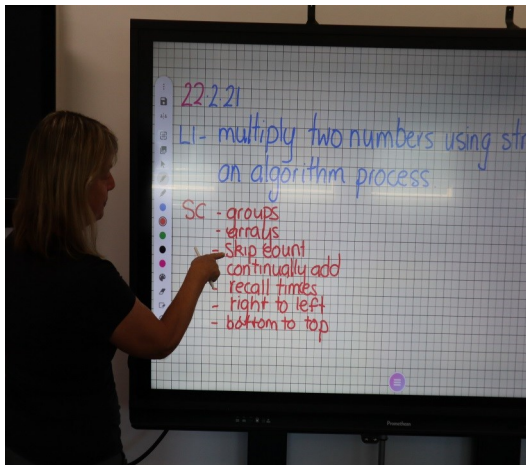 22.2.21
LI - multiply two numbers using
an algorithm process
SC - groups
- arrays
- skip count
- continually add
- recall times
- right to left
- bottom to top
Promethean